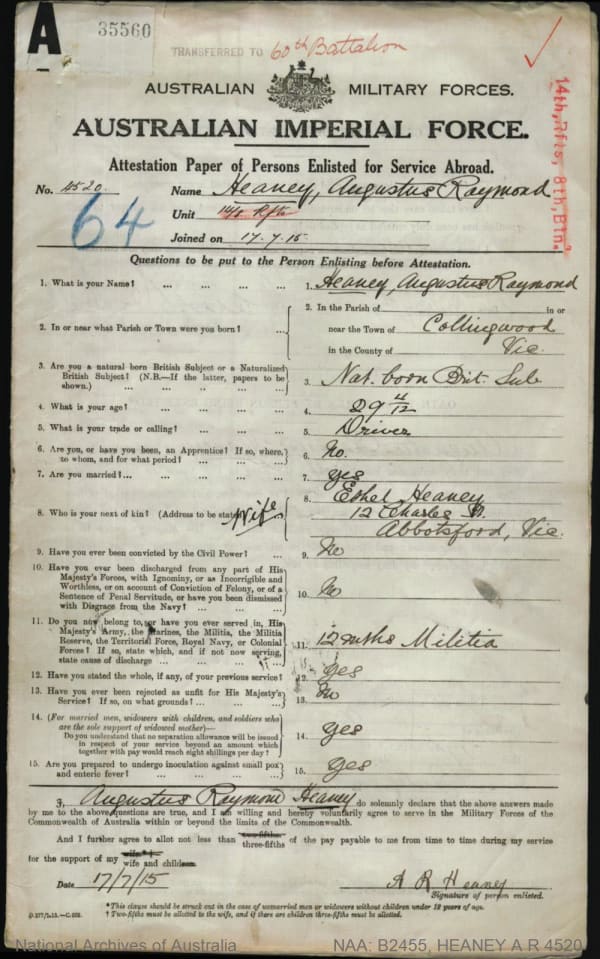 A
35560
TRANSFERRED TO 60th Battalion
AUSTRALIAN MILITARY FORCES.
AUSTRALIAN IMPERIAL FORCE.
14th, Rfts, 8th, Btn.
Attestation Paper of Persons Enlisted for Service Abroad.
No. 4520 Name Heaney, Augustus Raymond
64
Unit 14/8 Rfts
Joined on 17.7.15
Questions to be put to the Person Enlisting before Attestation.
1. What is your Name? ... ... ... ... 1. Heaney, Augustus Raymond
2. In or near what Parish or Town were you born? ... 2. In the Parish of in or
near the Town of Collingwood
in the County of Vic.
3. Are you a natural born British Subject or a Naturalized
British Subject? (N.B.—If the latter, papers to be
shown.) ... ... ... ... 3. Nat. born Brit. Sub
4. What is your age? ... ... ... ... 4. 29 4/12
5. What is your trade or calling? ... ... ... 5. Driver
6. Are you, or have you been, an Apprentice? If so, where,
to whom, and for what period? ... ... ... 6. No.
7. Are you married? ... ... ... ... 7. yes
8. Who is your next of kin? (Address to be stated) Wife 8. Ethel Heaney
12 Charles St.
Abbotsford, Vic.
9. Have you ever been convicted by the Civil Power? ... 9. No
10. Have you ever been discharged from any part of His
Majesty's Forces, with Ignominy, or as Incorrigible and
Worthless, or on account of Conviction of Felony, or of a
Sentence of Penal Servitude, or have you been dismissed
with Disgrace from the Navy? ... ... ... 10. No
11. Do you now belong to, or have you ever served in, His
Majesty's Army, the Marines, the Militia, the Militia
Reserve, the Territorial Force, Royal Navy, or Colonial
Forces? If so, state which, and if not now serving,
state cause of discharge ... ... ... 11. 12 mths Militia
12. Have you stated the whole, if any, of your previous service? 12. yes
13. Have you ever been rejected as unfit for His Majesty's
Service? If so, on what grounds? ... ... ... 13. No
14. (For married men, widowers with children, and soldiers who
are the sole support of widowed mother)—
Do you understand that no separation allowance will be issued
in respect of your service beyond an amount which
together with pay would reach eight shillings per day? 14. yes
15. Are you prepared to undergo inoculation against small pox
and enteric fever? ... ... ... ... 15. yes
I, Augustus Raymond Heaney do solemnly declare that the above answers made
by me to the above questions are true, and I am willing and hereby voluntarily agree to serve in the Military Forces of the
Commonwealth of Australia within or beyond the limits of the Commonwealth.
And I further agree to allot not less than two-fifths three-fifths of the pay payable to me from time to time during my service
for the support of my wife*† wife and children
Date 17/7/15 A R Heaney
Signature of person enlisted.
*This clause should be struck out in the case of unmarried men or widowers without children under 18 years of age.
† Two-fifths must be allotted to the wife, and if there are children three-fifths must be allotted.
National Archives of Australia NAA: B2455, HEANEY A R 4520